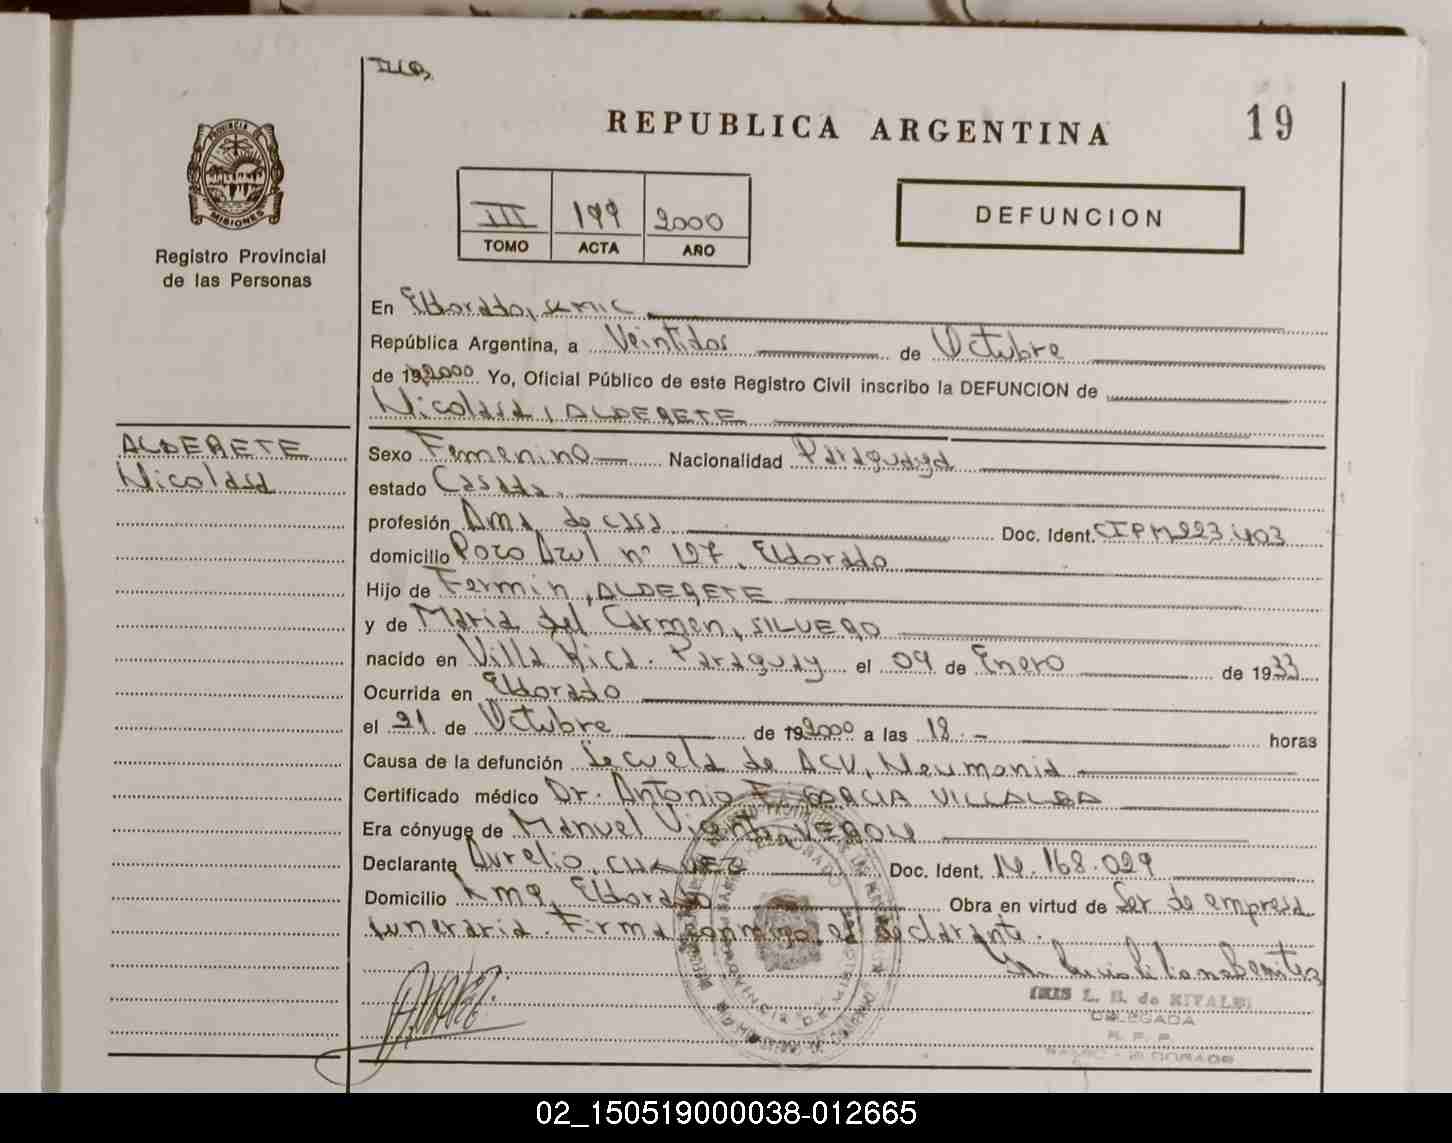 REPUBLICA ARGENTINA
19
PROVINCIA DE
MISIONES
Registro Provincial
de las Personas
III 199 2000
TOMO ACTA AÑO
DEFUNCION
En Eldorado,
República Argentina, a Veintidos de Octubre
de 192000 Yo, Oficial Público de este Registro Civil inscribo la DEFUNCION de
Nicolasa, ALDERETE
ALDERETE
Nicolasa
Sexo Femenino Nacionalidad Paraguaya
estado Casada.
profesión Ama de casa Doc. Ident. CIPM223.403
domicilio Pozo Azul nº 127, Eldorado
Hijo de Fermin, ALDERETE
y de Maria del Carmen, SILVERO
nacido en Villa Rica. Paraguay el 09 de Enero de 1933
Ocurrida en Eldorado
el 21 de Octubre de 192000 a las 18.- horas
Causa de la defunción Secuela de ACV, Neumonia
Certificado médico Dr. Antonio E. GARCIA VILLALBA
Era cónyuge de Manuel Vicente
Declarante Aurelio, CHAVEZ Doc. Ident. 14.168.029
Domicilio Km 9, Eldorado Obra en virtud de Ser de empresa
funeraria. Firma conmigo el declarante.
IRIS L. B. de RIVALDI
DELEGADA
R. P. P.
02_150519000038-012665